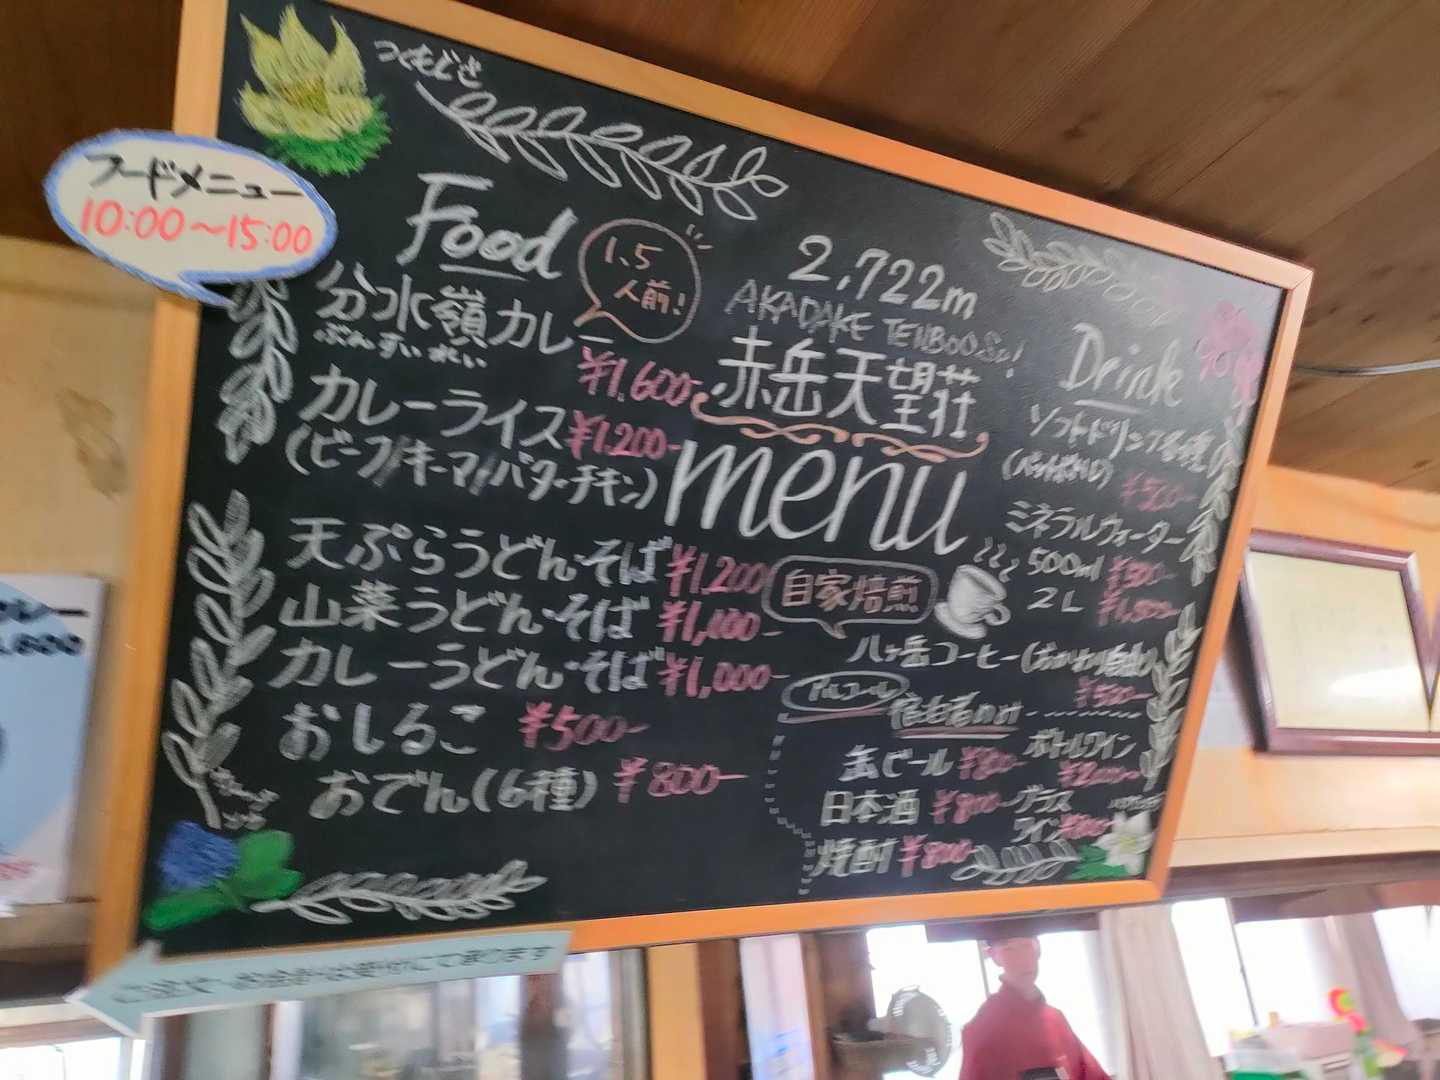 フードメニュー
10:00~15:00
つくもぐさ
Food
1.5
人前!
分水嶺カレー
ぶんすいれい
¥1,600-
カレーライス ¥1,200-
(ビーフ/キーマ/バターチキン)
天ぷらうどん・そば ¥1,200
山菜うどん・そば ¥1,100-
カレーうどん・そば ¥1,000-
おしるこ ¥500-
おでん(6種) ¥800-
2,722m
AKADAKE TENBOOSo!
赤岳天望荘
menu
Drink
ソフトドリンク各種
(ペットボトル)
¥500-
ミネラルウォーター
500ml ¥500-
2L
自家焙煎
八ヶ岳コーヒー(おかわり自由)
¥500-
アルコール
宿泊者のみ
缶ビール
日本酒 ¥800-
焼酎 ¥800-
ボトルワイン
グラス
ワイン
カレー
1,600